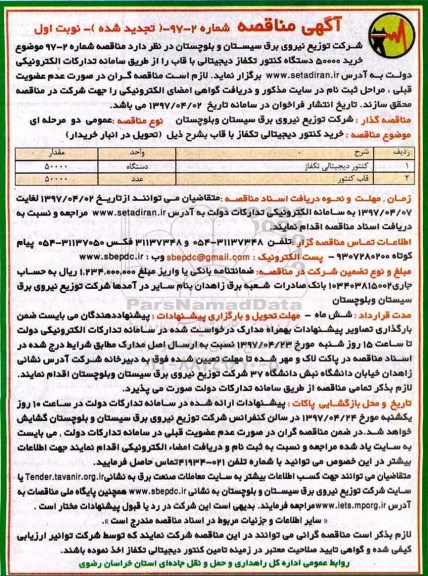 آگهی مناقصه شماره ۲-۹۷-( تجدید شده )- نوبت اول
شرکت توزیع نیروی برق سیستان و بلوچستان در نظر دارد مناقصه شماره ۲-۹۷ موضوع
خرید ۵۰۰۰۰ دستگاه کنتور تکفاز دیجیتالی با قاب را از طریق سامانه تدارکات الکترونیکی
دولت به آدرس www.setadiran.ir برگزار نماید. لازم است مناقصه گران در صورت عدم عضویت
قبلی ، مراحل ثبت نام در سایت مذکور و دریافت گواهی امضای الکترونیکی را جهت شرکت در مناقصه
محقق سازند. تاریخ انتشار فراخوان در سامانه تاریخ ۱۳۹۷/۰۴/۰۲ می باشد.
مناقصه گذار : شرکت توزیع نیروی برق سیستان وبلوچستان نوع مناقصه :عمومی دو مرحله ای
موضوع مناقصه : خرید کنتور دیجیتالی تکفاز با قاب بشرح ذیل (تحویل در انبار خریدار)
ردیف شرح واحد مقدار
۱ کنتور دیجیتالی تکفاز دستگاه ۵۰۰۰۰
۲ قاب کنتور عدد ۵۰۰۰۰
زمان ، مهلت و نحوه دریافت اسناد مناقصه :متقاضیان می توانند از تاریخ ۱۳۹۷/۰۴/۰۲ لغایت
۱۳۹۷/۰۴/۰۷ به سامانه الکترونیکی تدارکات دولت به آدرس www.setadiran.ir مراجعه و نسبت به
دریافت اسناد مناقصه اقدام نمایند.
اطلاعات تماس مناقصه گزار :تلفن ۳۱۱۳۷۳۴۸-۰۵۴ و ۳۱۱۳۷۳۴۸ فکس ۳۱۱۳۷۰۵۰-۰۵۴ پیام
کوتاه ۹۳۰۷۲۸۰۲۰۰ - پست الکترونیک : sbepdc@gmail.com وب : www.sbepdc.ir
مبلغ و نوع تضمین شرکت در مناقصه: ضمانتنامه بانکی یا واریز مبلغ ۱.۲۳۴.۰۰۰.۰۰۰ ریال به حساب
جاری۱۰۳۴۰۳۸۱۵۰۰۲ بانک صادرات شعبه برق زاهدان بنام سایر در آمدها شرکت توزیع برق
سیستان وبلوچستان
مدت قرارداد : شش ماه - مهلت تحویل و بارگزاری پیشنهادات : پیشنهاددهندگان می بایست ضمن
بارگذاری تصاویر پیشنهادات بهمراه مدارک درخواست شده در سامانه تدارکات الکترونیکی دولت
تا ساعت ۱۵ روز شنبه مورخ ۱۳۹۷/۰۴/۲۳ نسبت به ارسال اصل مدارک مطابق شرایط درج شده در
اسناد مناقصه در پاکت لاک و مهر شده تا مهلت تعیین شده فوق به دبیرخانه شرکت آدرس نشانی
زاهدان خیابان دانشگاه نبش دانشگاه ۳۷ شرکت توزیع نیروی برق سیستان وبلوچستان اقدام نمایند.
لازم بذکر تمامی مناقصه از طریق سامانه تدارکات دولت صورت می پذیرد.
تاریخ و محل بازگشایی پاکات : پیشنهادات ارائه شده در سامانه تدارکات دولت در ساعت ۱۰ روز
یکشنبه مورخ ۱۳۹۷/۰۴/۲۴ در سالن کنفرانس شرکت توزیع نیروی برق سیستان و بلوچستان گشایش
خواهد شد.در ضمن مناقصه گران در صورت عدم عضویت قبلی در سامانه تدارکات دولت ، می بایست
به سایت یاد شده مراجعه و نسبت به ثبت نام و دریافت امضاء الکترونیکی اقدام نمایند جهت اطلاعات
بیشتر در این خصوص می توانید با شماره تلفن ۰۲۱-۴۱۹۳۴تماس حاصل فرمایید.
متقاضیان می توانند جهت کسب اطلاعات بیشتر به سایت معاملات صنعت برق به نشانیTender.tavanir.org.ir یا
سایت شرکت توزیع نیروی برق سیستان و بلوچستان به نشانی www.sbepdc.ir همچنین پایگاه ملی مناقصات به
آدرس www.iets.mporg.irمراجعه فرمایند. بدیهی است این شرکت در رد یا قبول پیشنهادات مختار است .
« سایر اطلاعات و جزئیات مربوط در اسناد مناقصه مندرج است ».
لازم بذکر است مناقصه گرانی می توانند در این مناقصه شرکت نمایند که توسط شرکت توانیر ارزیابی
کیفی شده و گواهی تایید صلاحیت معتبر در زمینه تامین کنتور دیجیتالی تکفاز اخذ نموده باشند.
روابط عمومی اداره کل راهداری و حمل و نقل جاده‌ای استان خراسان رضوی
ParsNamadData